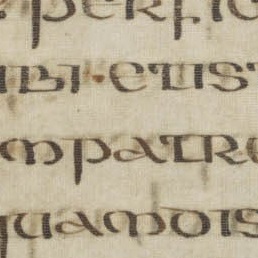 perfic
ibi · etis
mpatr
quamdis